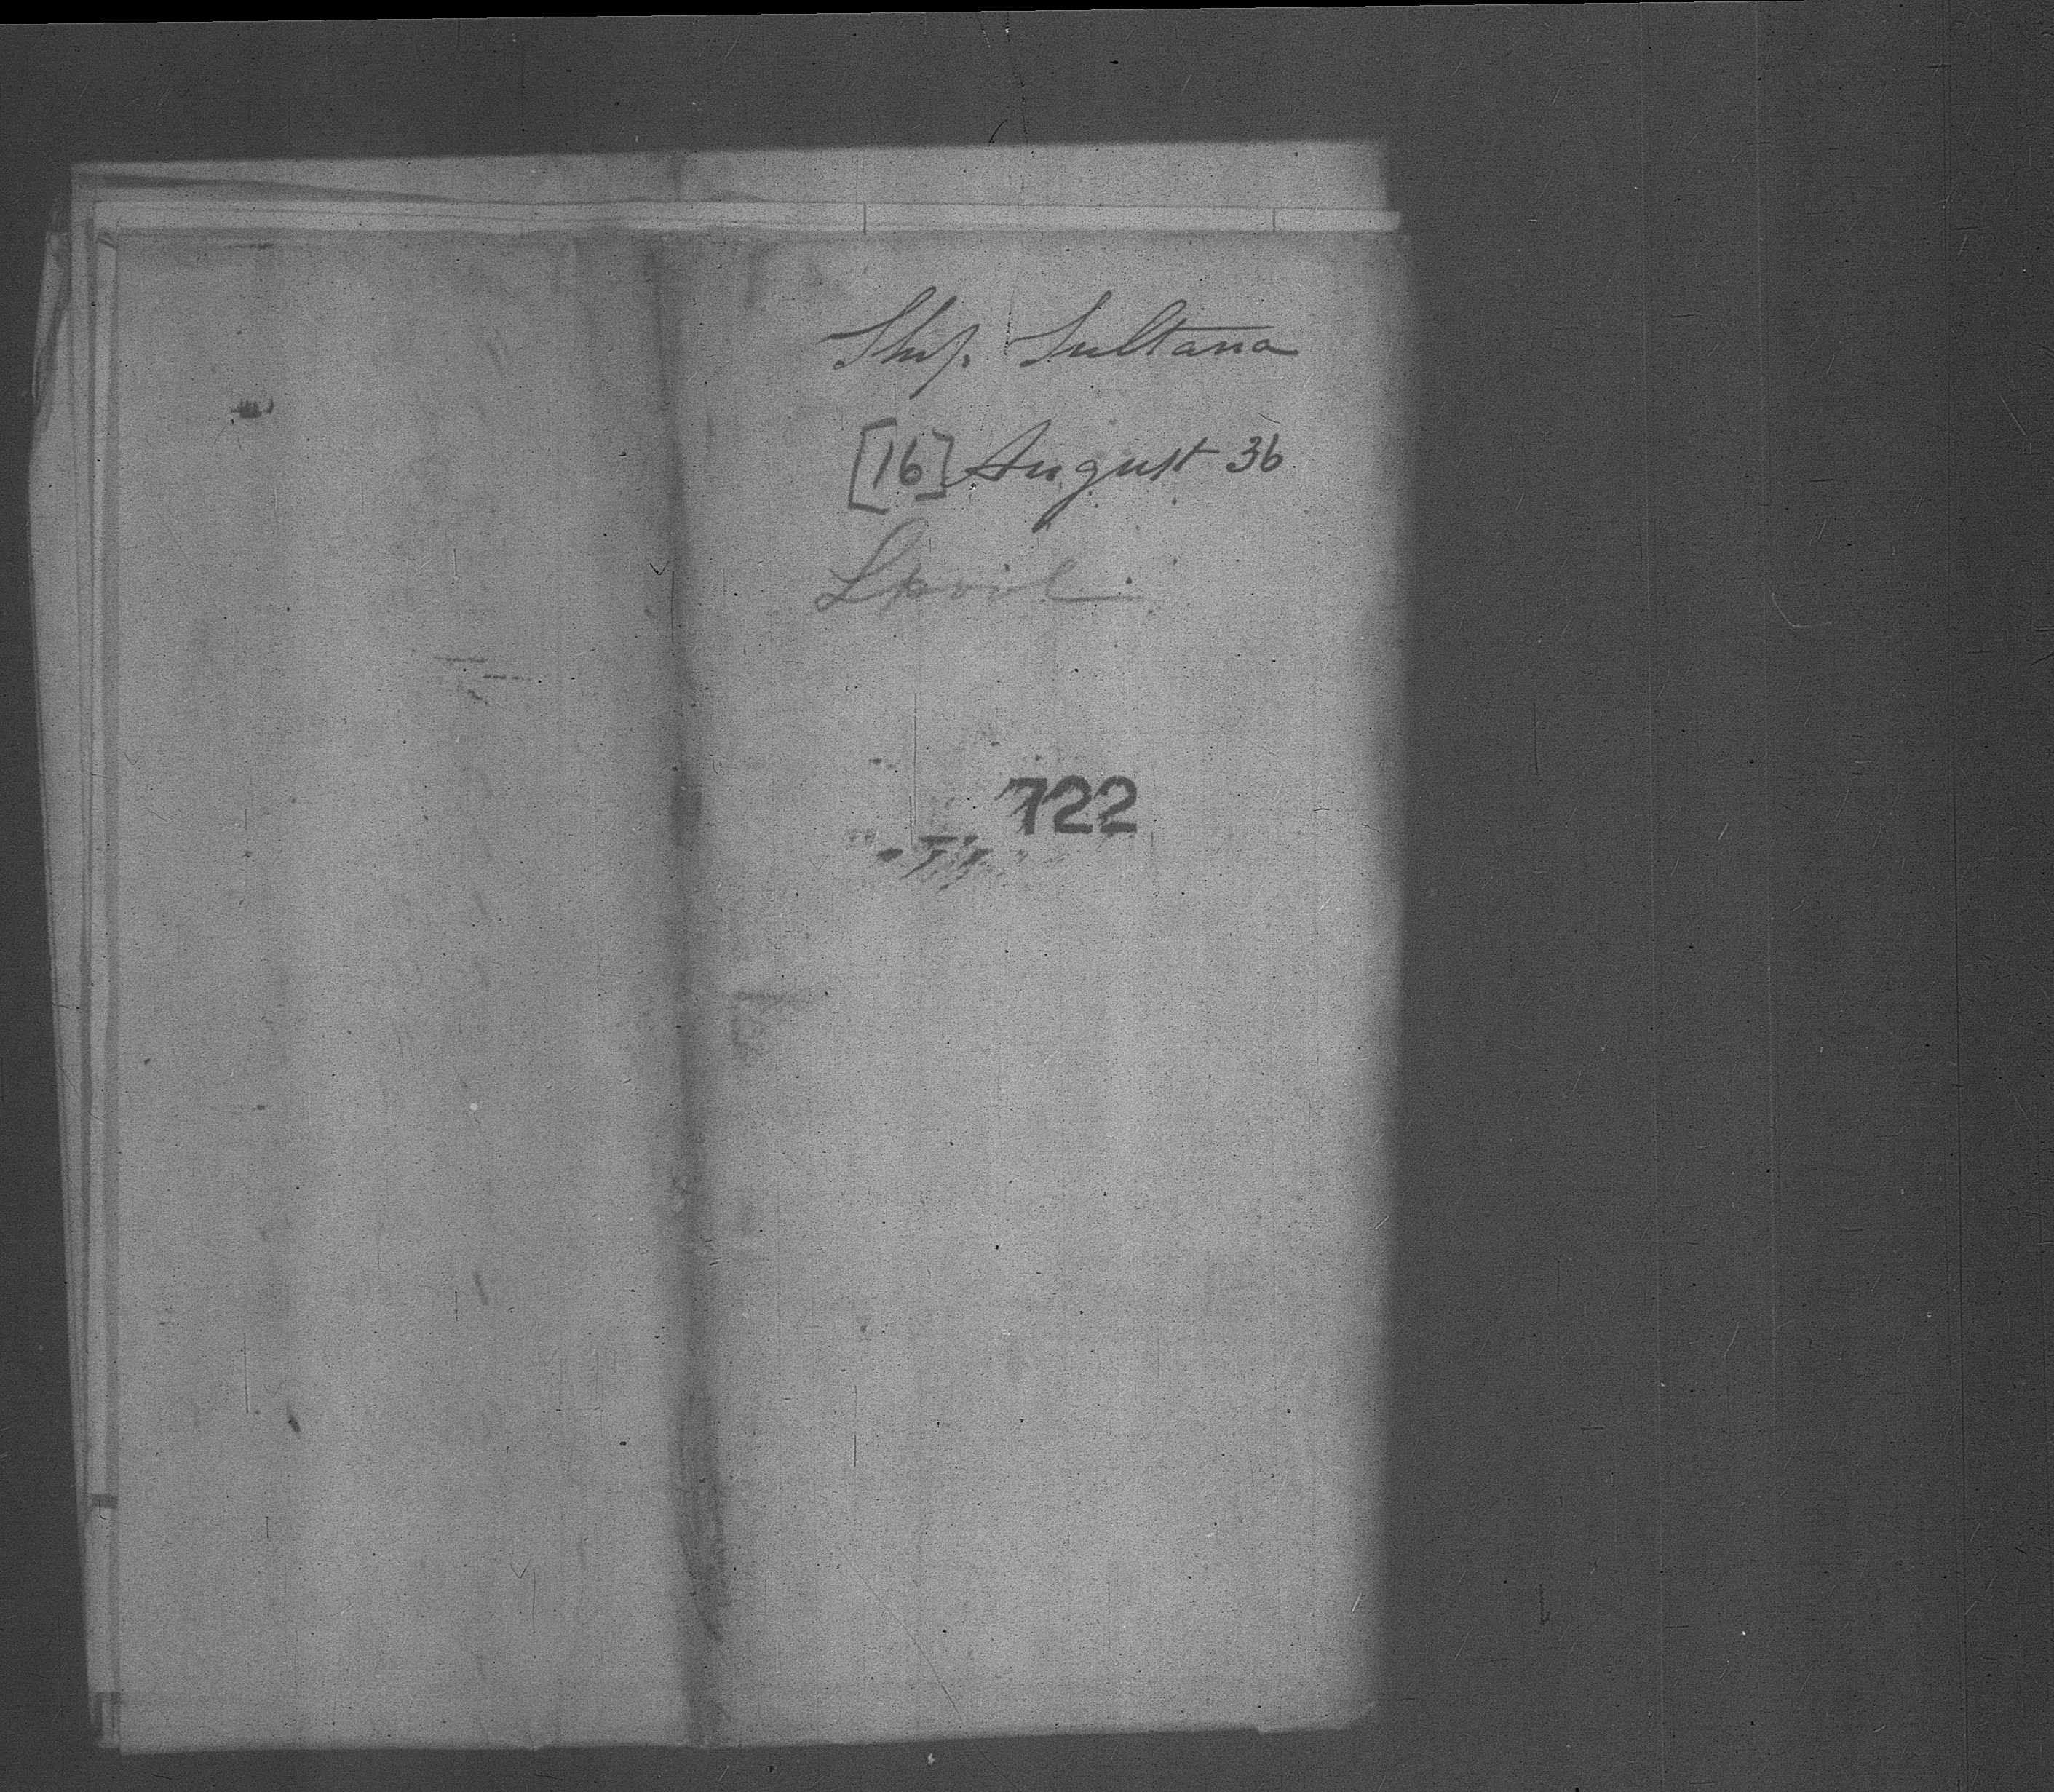 Ship. Sultana
[16] August 36
Lpool
722